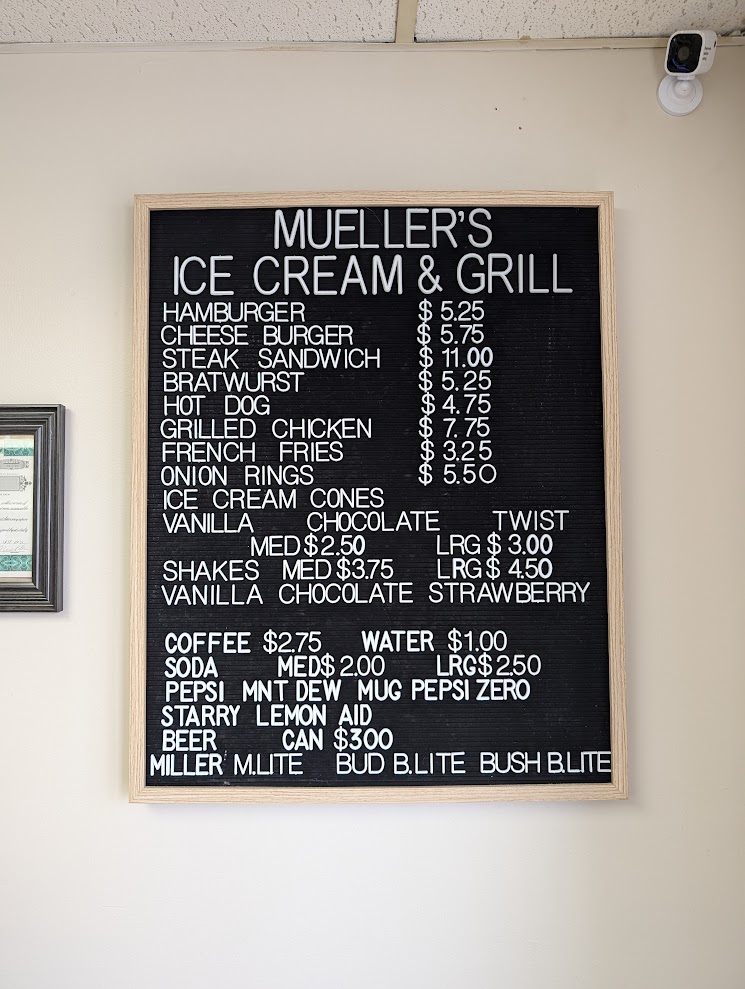 MUELLER'S
ICE CREAM & GRILL
HAMBURGER $ 5.25
CHEESE BURGER $ 5.75
STEAK SANDWICH $ 11.00
BRATWURST $ 5.25
HOT DOG $ 4.75
GRILLED CHICKEN $ 7.75
FRENCH FRIES $ 3.25
ONION RINGS $ 5.50
ICE CREAM CONES
VANILLA CHOCOLATE TWIST
MED $ 2.50 LRG $ 3.00
SHAKES MED $3.75 LRG $ 4.50
VANILLA CHOCOLATE STRAWBERRY
COFFEE $2.75 WATER $1.00
SODA MED$ 2.00 LRG$ 2.50
PEPSI MNT DEW MUG PEPSI ZERO
STARRY LEMON AID
BEER CAN $300
MILLER M.LITE BUD B.LITE BUSH B.LITE